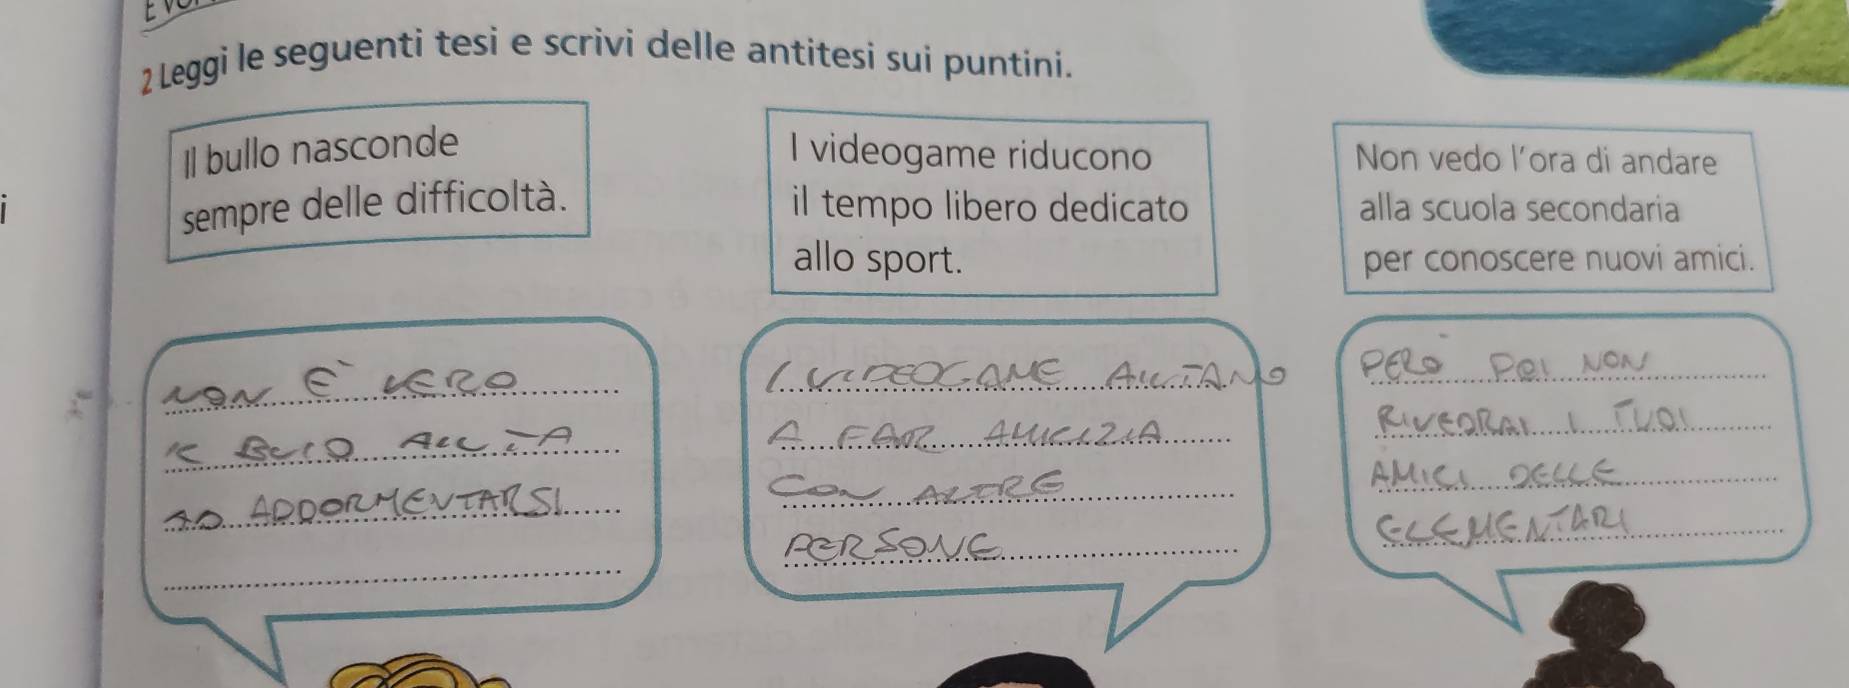 2 Leggi le seguenti tesi e scrivi delle antitesi sui puntini.
Il bullo nasconde
sempre delle difficoltà.
I videogame riducono
il tempo libero dedicato
allo sport.
Non vedo l'ora di andare
alla scuola secondaria
per conoscere nuovi amici.
NON È VERO
IL BUIO AIUTA
AD ADDORMENTARSI
I VIDEOGAME AIUTANO
A FAR AMICIZIA
CON ALTRE
PERSONE
PERÒ POI NON
RIVEDRAI I TUOI
AMICI DELLE
ELEMENTARI